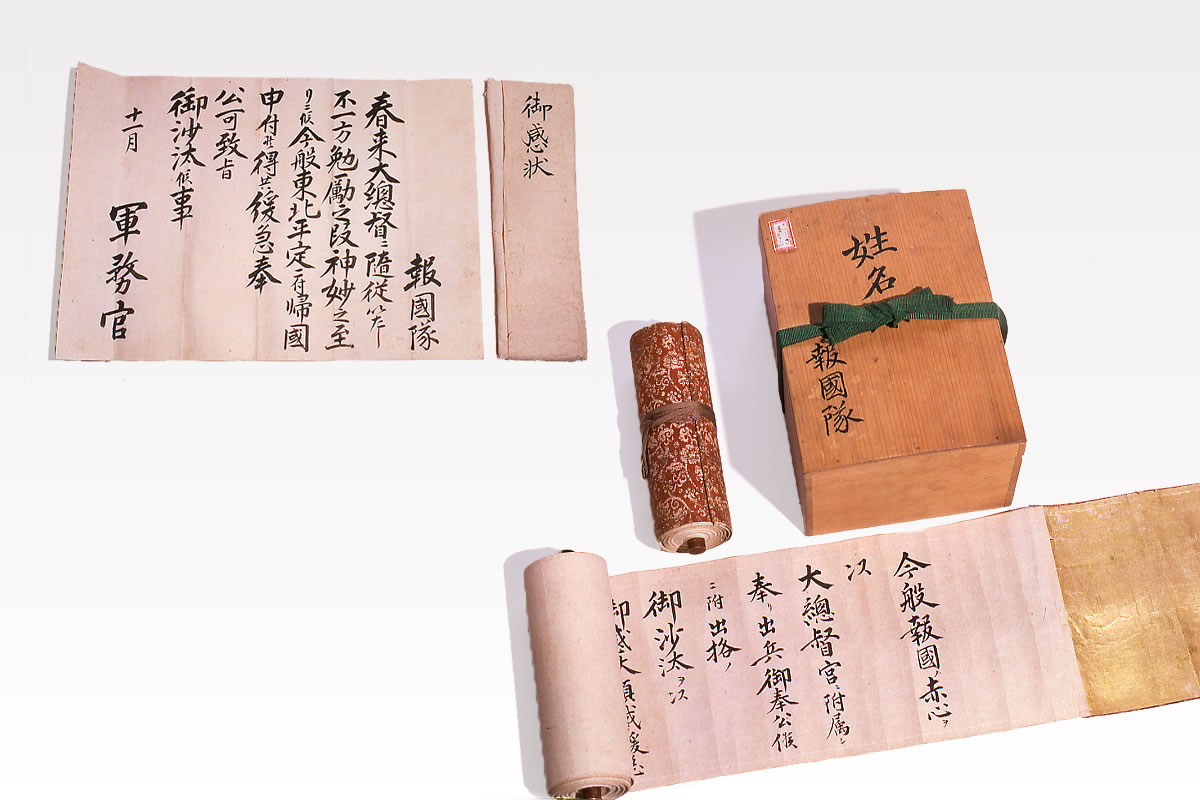 報國隊
春来大總督ニ隨従いたし
不一方勉勵之段神妙之至
リニ候今般東北平定ニ付帰國
申付候得共緩急奉
公可致旨
御沙汰候事
十一月
軍務官
御感状
姓名
報國隊
今般報國ノ赤心ヲ
以
大總督宮ニ附属シ
奉リ出兵御奉公候
ニ附出格ノ
御沙汰ヲ以
御感状頂戴緩急